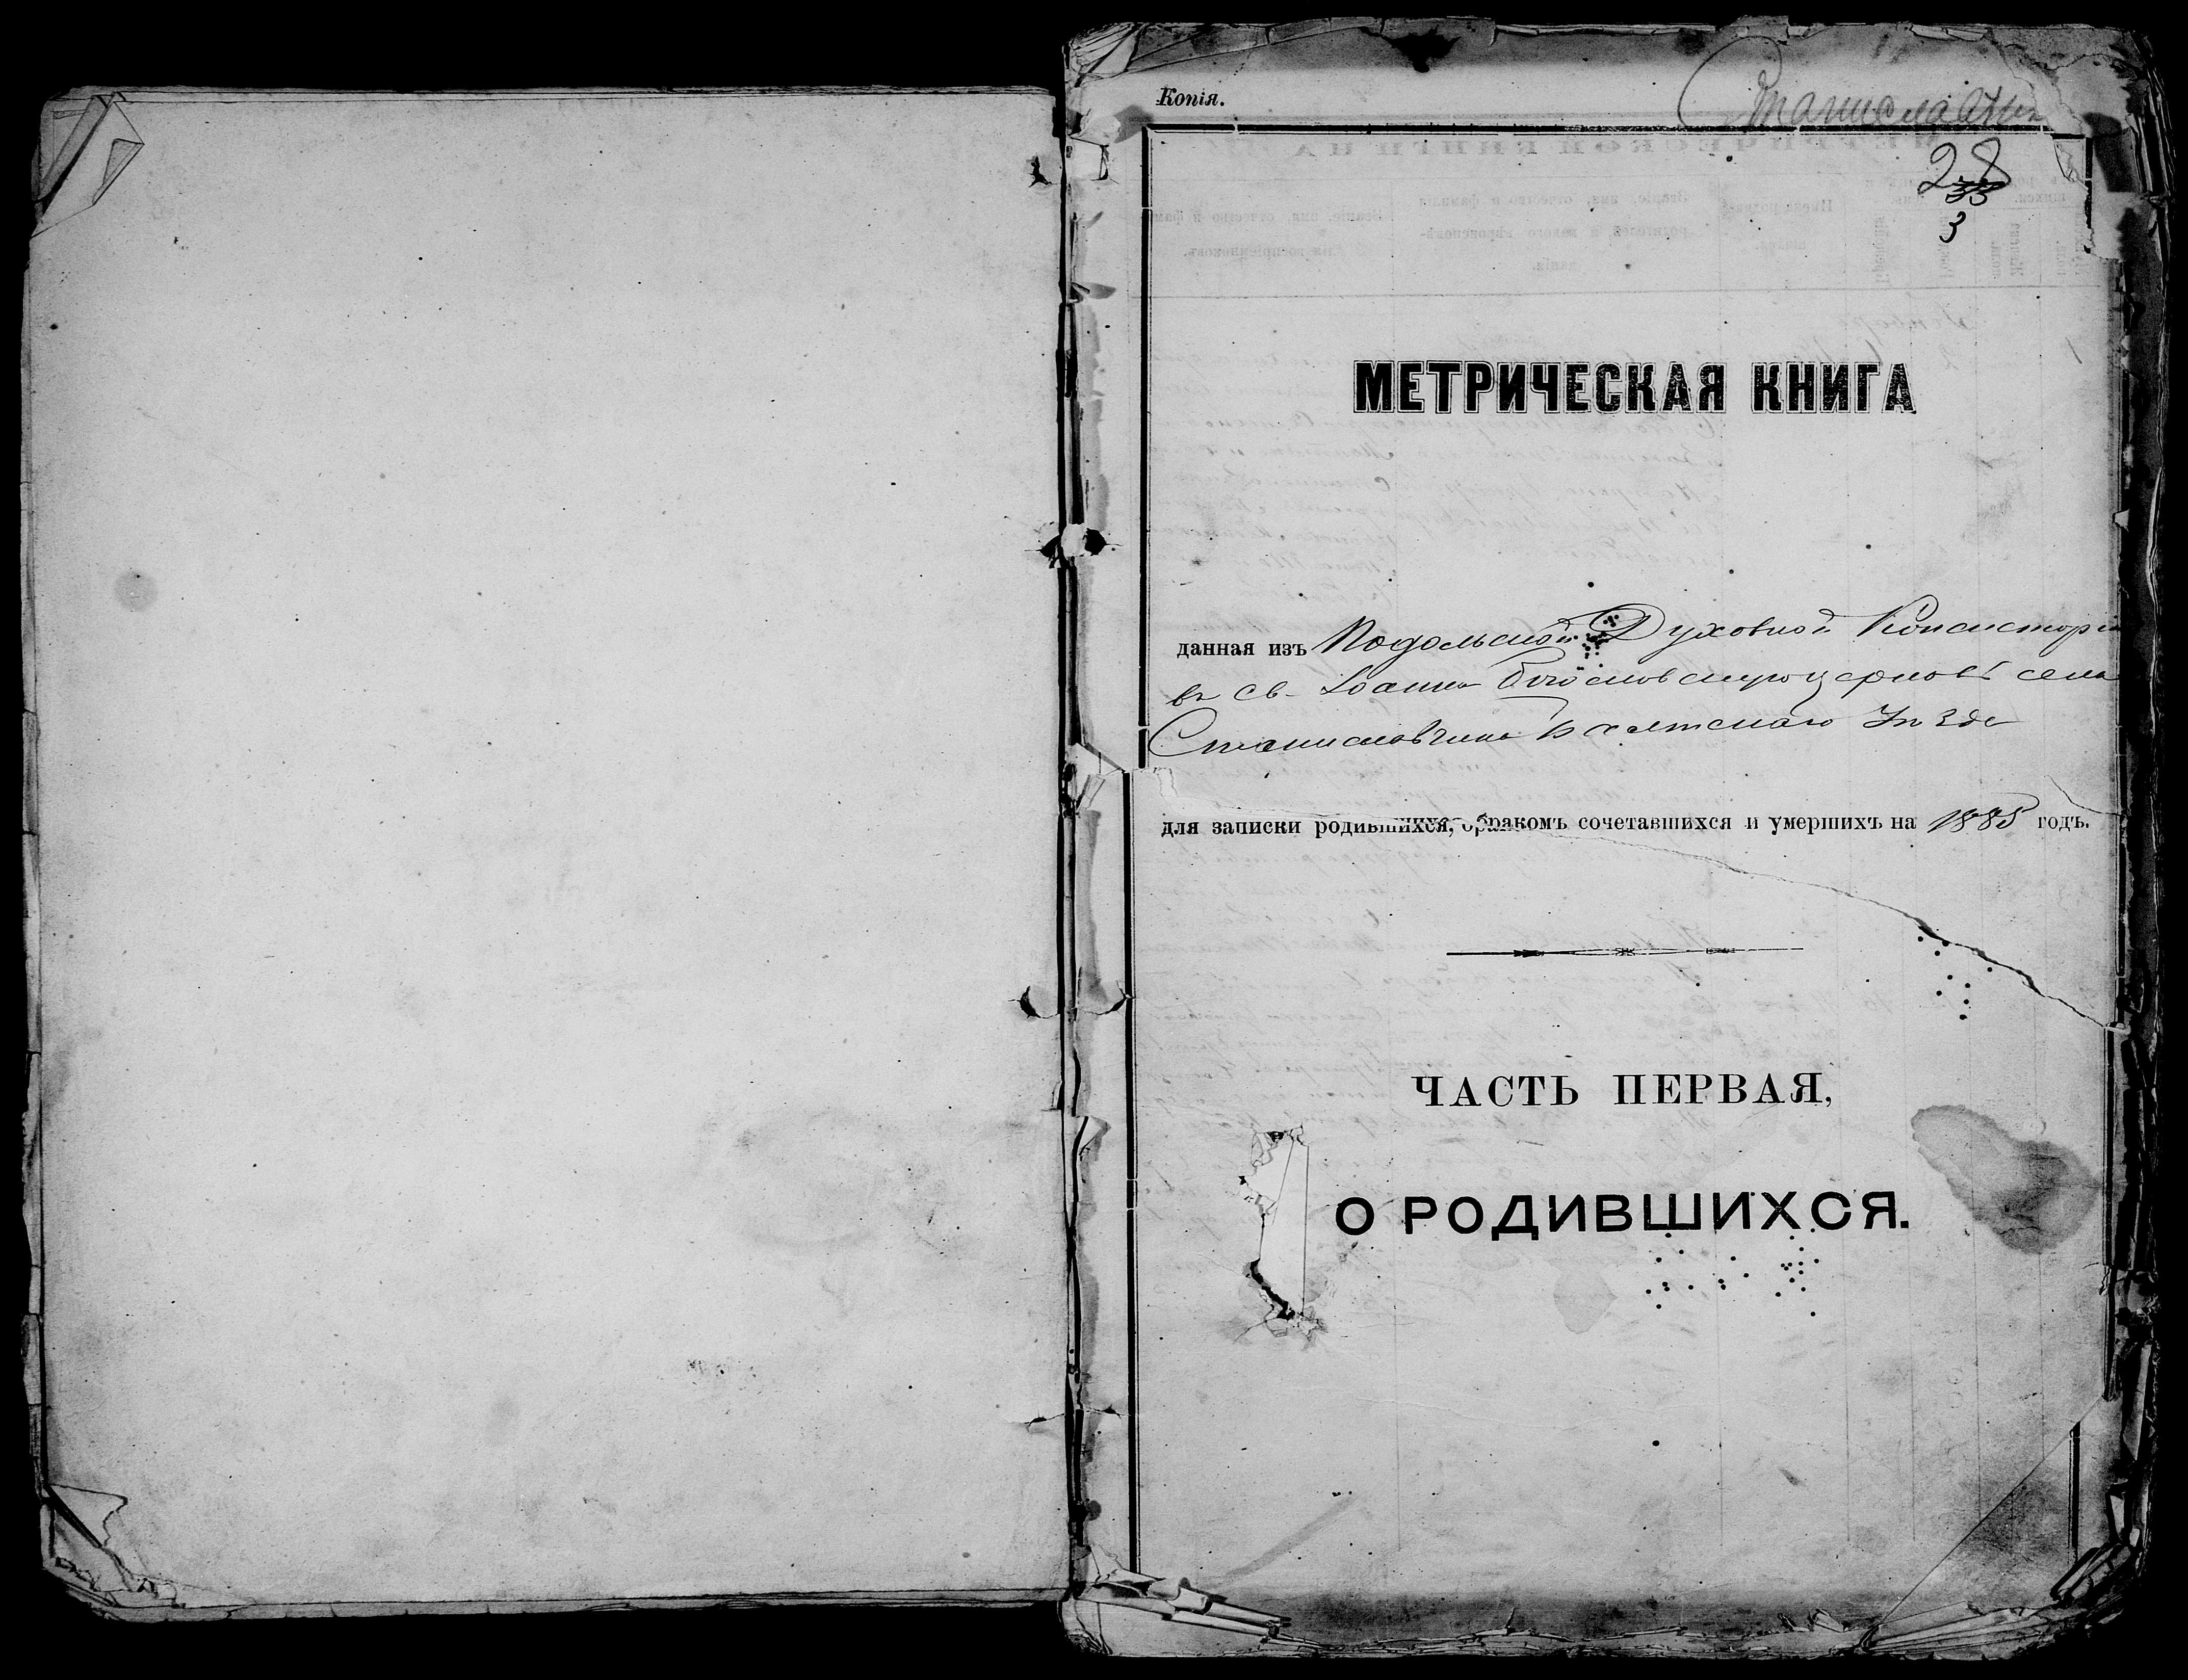 Копія.
28
33
3
МЕТРИЧЕСКАЯ КНИГА
данная изъ Подольской Духовной Консисторіи
въ св. Іоанно Богословскую церковь села
Станиславчика Ямпольскаго Уѣзда
для записки родившихся, бракомъ сочетавшихся и умершихъ на 1885 годъ.
ЧАСТЬ ПЕРВАЯ,
О РОДИВШИХСЯ.